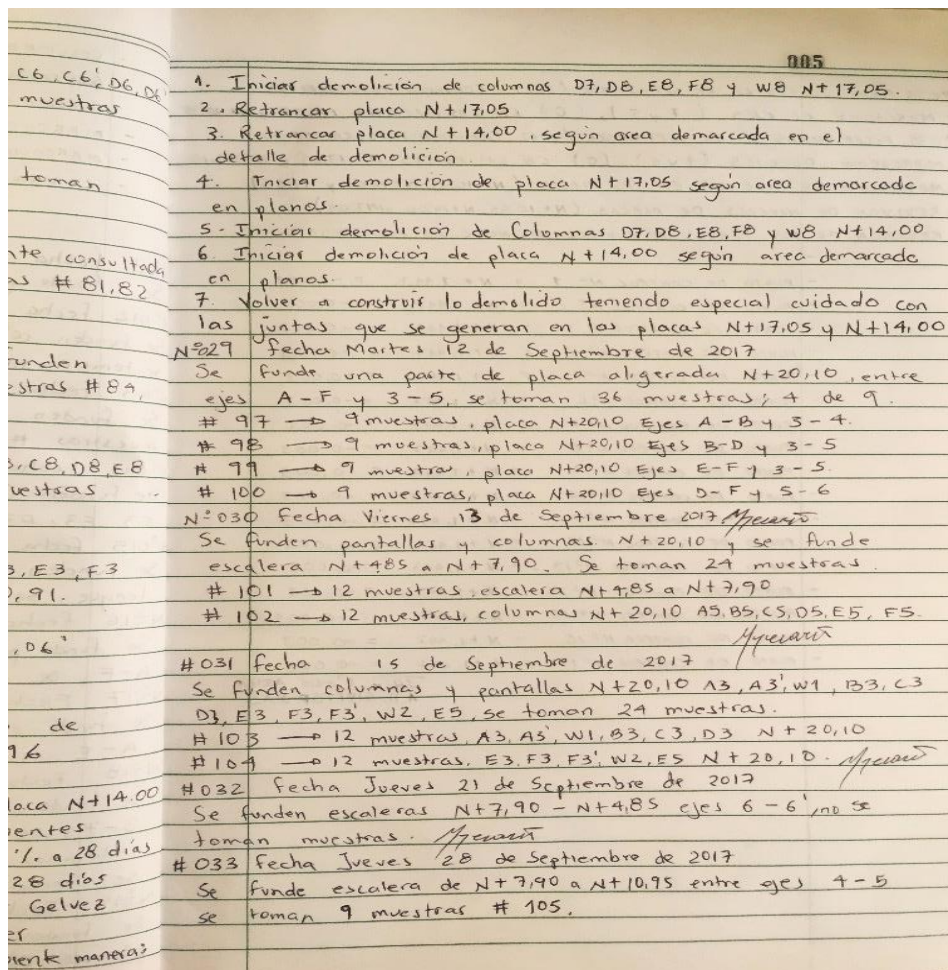 C6, C6', D6, D6'
muestras
toman
nte consultada
as # 81,82
funden
estras # 84,
3, C8, D8, E8
uestras
3, E3, F3
0, 91.
, D6'
de
96
laca N+14.00
entes
%. a 28 días
28 dias
Gelvez
er
iente manera:
005
1. Iniciar demolición de columnas D7, D8, E8, F8 y W8 N+17,05.
2. Retrancar placa N+17,05
3. Retrancar placa N+14,00, según area demarcada en el
detalle de demolición.
4. Iniciar demolición de placa N+17,05 según area demarcada
en planos.
5. Iniciar demolición de Columnas D7, D8, E8, F8 y W8 N+14,00
6. Iniciar demolición de placa N+14,00 según area demarcada
en planos.
7. Volver a construir lo demolido teniendo especial cuidado con
las juntas que se generan en las placas N+17,05 y N+14,00
Nº029 fecha Martes 12 de Septiembre de 2017
Se funde una parte de placa aligerada N+20,10, entre
ejes A-F y 3-5, se toman 36 muestras; 4 de 9.
# 97 → 9 muestras, placa N+20,10 Ejes A-B y 3-4.
# 98 → 9 muestras, placa N+20,10 Ejes B-D y 3-5
# 99 → 9 muestras, placa N+20,10 Ejes E-F y 3-5.
# 100 → 9 muestras, placa N+20,10 Ejes D-F y 5-6
Nº030 fecha Viernes 13 de Septiembre 2017
Se funden pantallas y columnas N+20,10 y se funde
escalera N+4,85 a N+7,90. Se toman 24 muestras.
# 101 → 12 muestras escalera N+4,85 a N+7,90
# 102 → 12 muestras, columnas N+20,10 A5, B5, C5, D5, E5, F5.
#031 fecha 15 de Septiembre de 2017
Se funden columnas y pantallas N+20,10 A3, A3', W1, B3, C3
D3, E3, F3, F3', W2, E5, se toman 24 muestras.
# 103 → 12 muestras, A3, A3', W1, B3, C3, D3 N+20,10
# 104 → 12 muestras, E3, F3, F3', W2, E5 N+20,10.
#032 fecha Jueves 21 de Septiembre de 2017
Se funden escaleras N+7,90 - N+4,85 ejes 6-6', no se
toman muestras.
#033 fecha Jueves 28 de Septiembre de 2017
Se funde escalera de N+7,90 a N+10,95 entre ejes 4-5
se toman 9 muestras # 105.